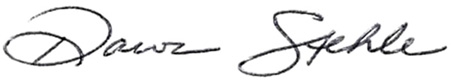 Dawn Stehle